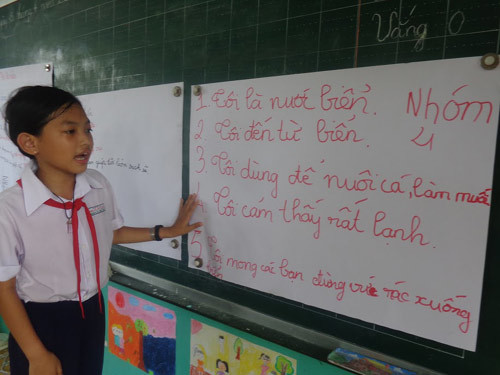 Vắng 0
Nhóm
4
1. Tôi là nước biển.
2. Tôi đến từ biển.
3. Tôi dùng để nuôi cá, làm muối
4. Tôi cảm thấy rất lạnh.
5. Tôi mong các bạn đừng vứt rác xuống